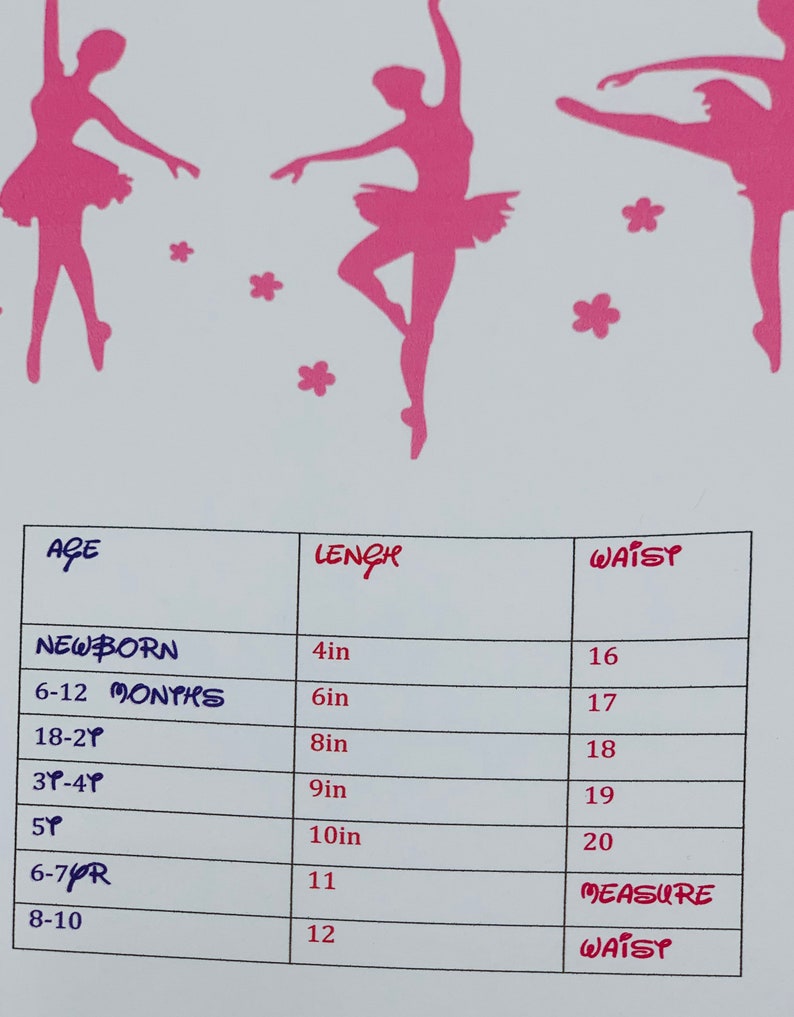 AGE LENGH WAIST
NEWBORN 4in 16
6-12 MONTHS 6in 17
18-2Y 8in 18
3Y-4Y 9in 19
5Y 10in 20
6-7YR 11 MEASURE
8-10 12 WAIST